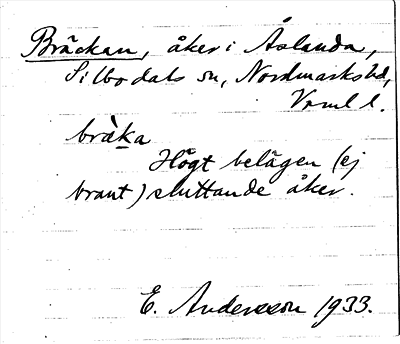 Bräckan, åker i Åslanda,
Silbodals sn, Nordmarks hd,
Vrml l.
bràka
Högt belägen (ej
brant) sluttande åker.
E. Andersson 1933.